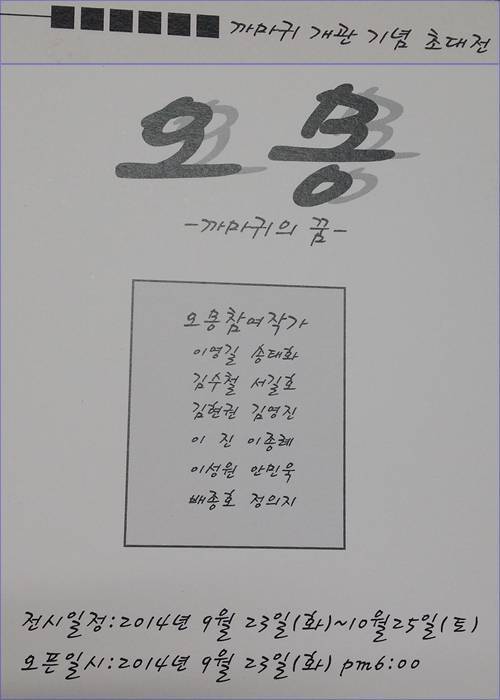 까마귀 개관 기념 초대전
오몽
-까마귀의 꿈-
오몽참여작가
이영길 송태화
김수철 서길호
김현권 김영진
이 진 이종례
이성원 안민욱
배종호 정의지
전시일정:2014년 9월 23일(화)~10월25일(토)
오픈일시:2014년 9월 23일(화) pm6:00